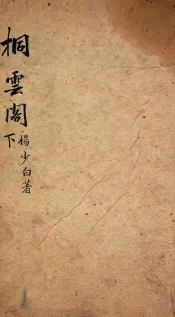 桐雲閣
下
楊少白著